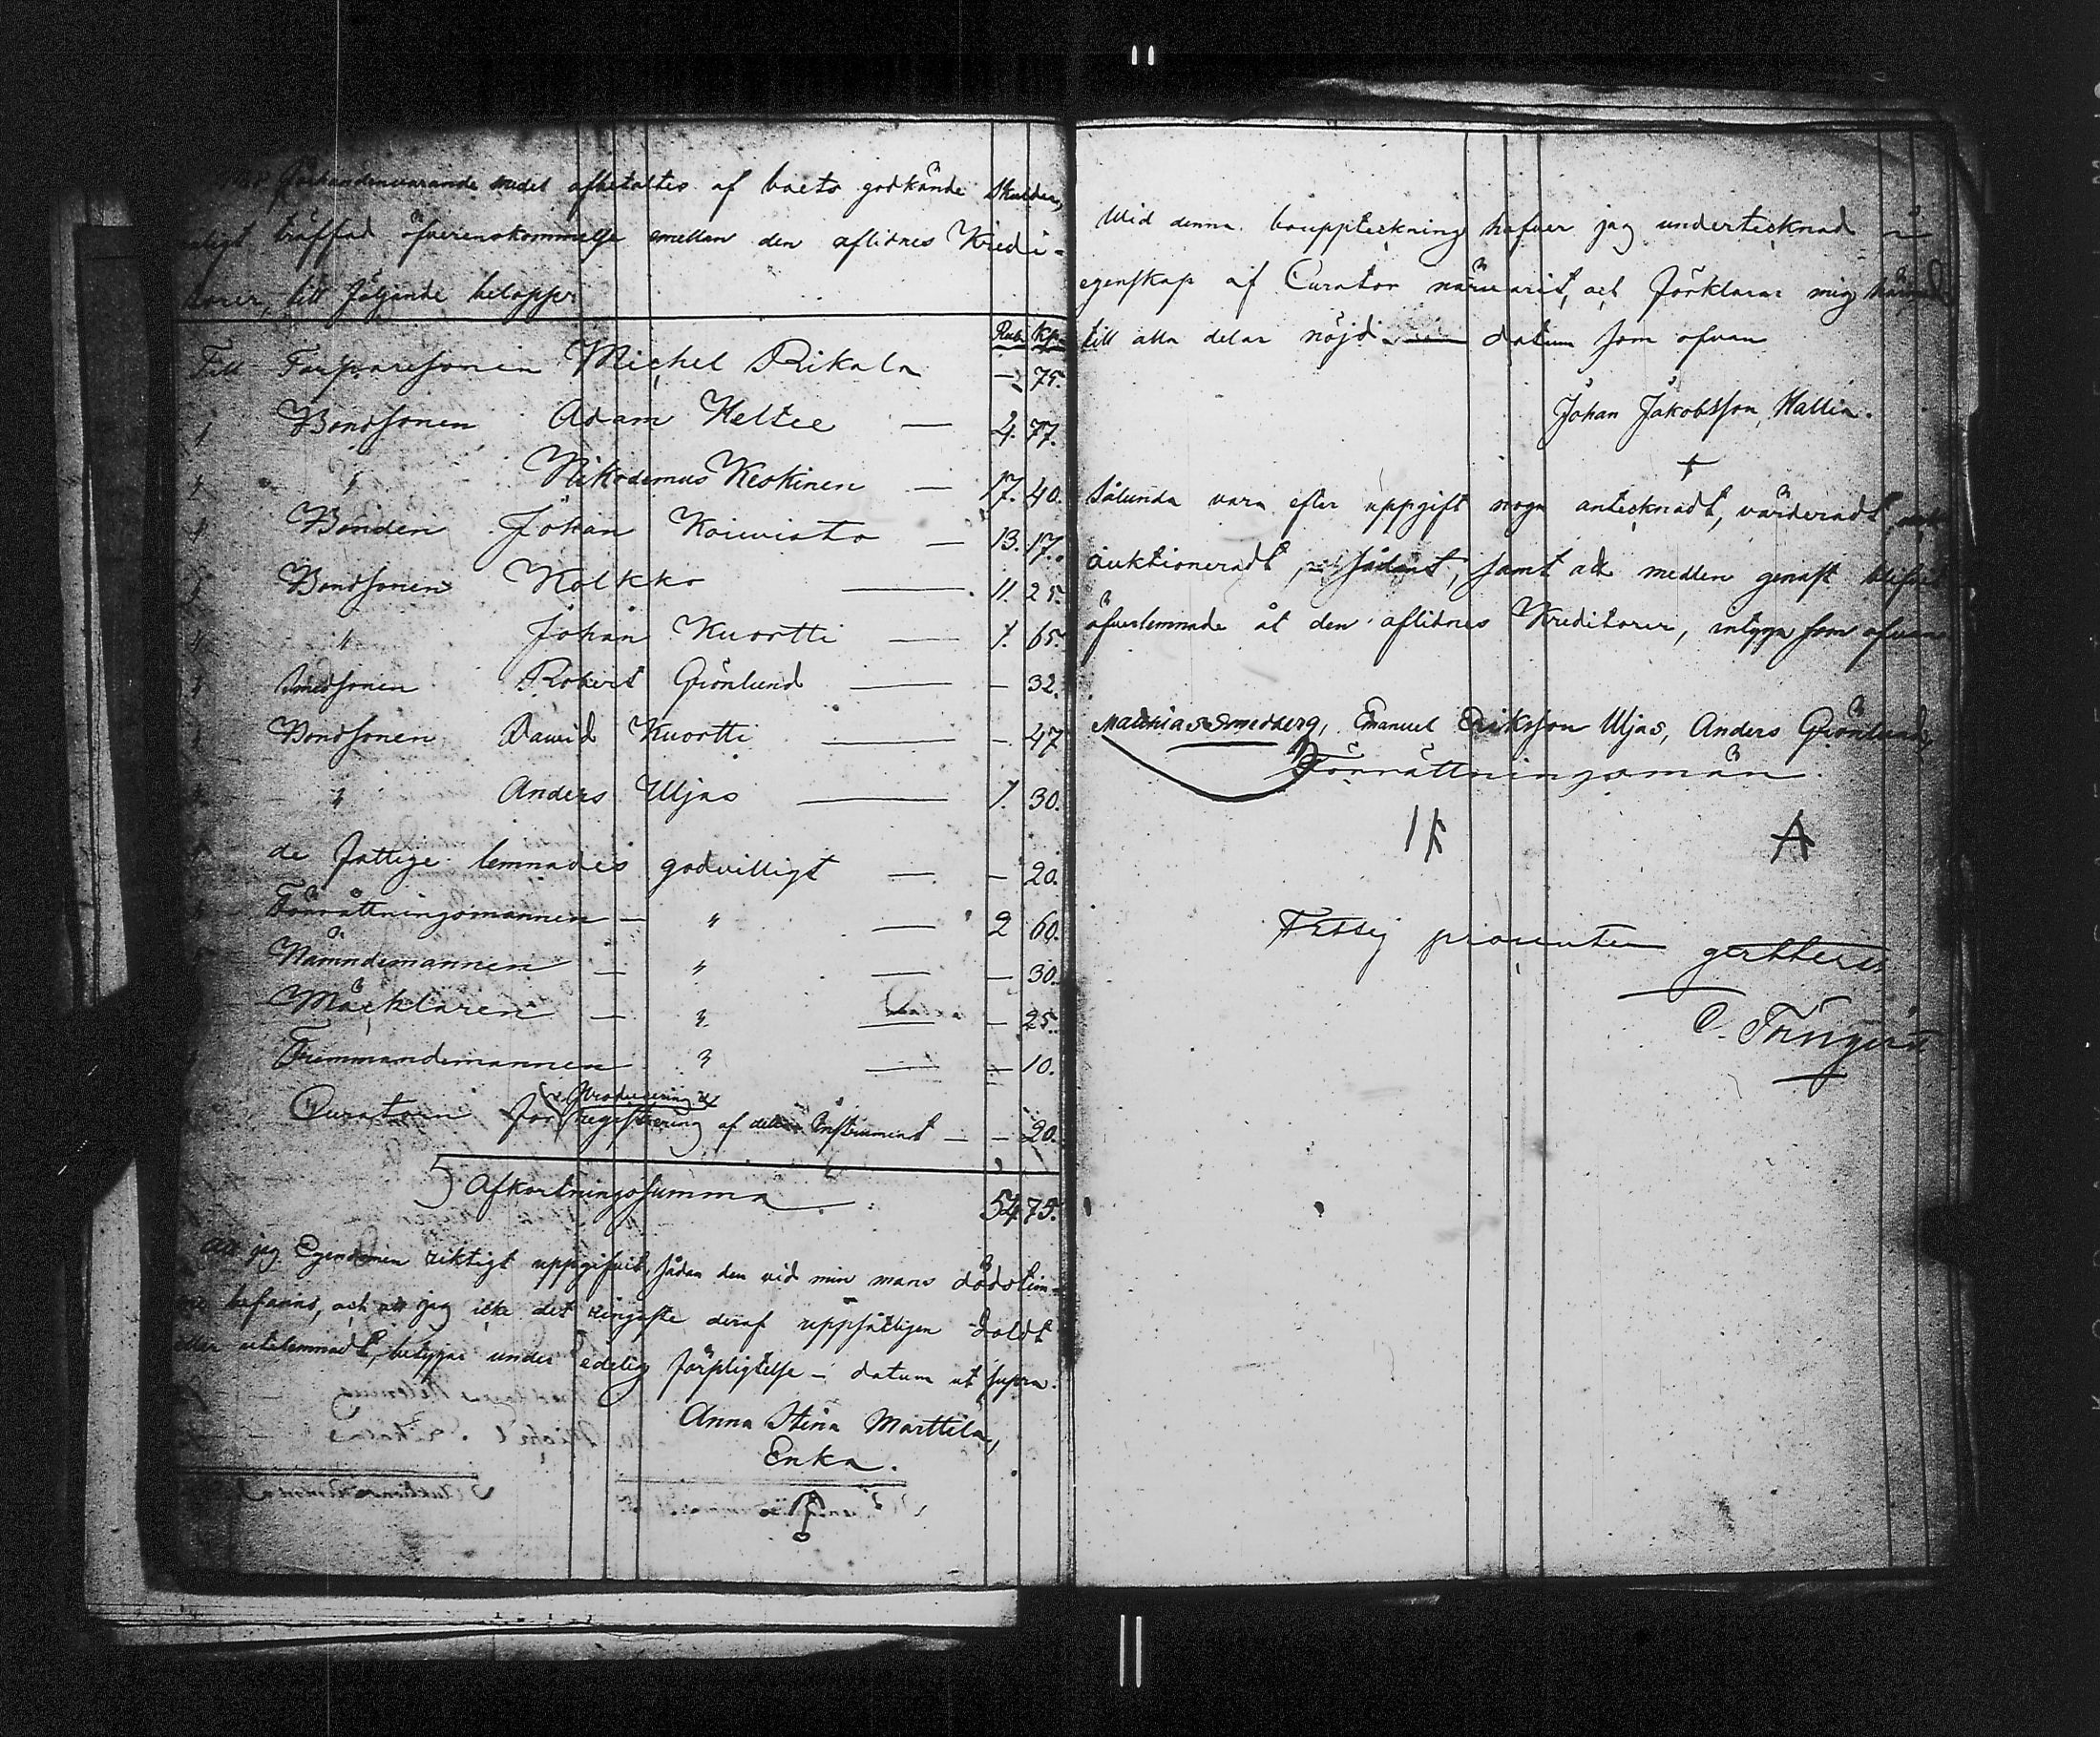 förhandenvarande medel afbetaltes af boets godkände skulder,
enligt träffad öfverenskommelse emellan den aflidnes Kredi-
torer, till följande belopp:
Rub. Kp.
Till Torparesonen Michel Rikala — 75.
" Bondsonen Adam Keltee — 4. 77.
" " Nikodemus Keskinen — 17. 40.
" Bonden Johan Koivisto — 13. 17.
" Bondsonen Kolkko — 11. 25.
" " Johan Kuortti — 1. 65.
" Smedsonen Robert Grönlund — — 32.
" Bondsonen David Kuortti — — 47
" " Anders Uljas — 1. 30.
" de fattige lemnades godvilligt — — 20.
" Förrättningsmannen — " — 2 60.
" Nämndemannen — " — — 30.
Mäcklaren — " — — 25.
Fremmandemannen " — — 10.
Curatorn för producering &
registrering af detta Instrument — — 20.
Afkortningssumma — 54 75.
Att jag Egendomen riktigt uppgifvit, sådan den vid min mans dödstim-
me befanns, och att jag icke det ringaste deraf uppsåtligen doldt
eller utelemnadt, betygar under edelig förpligtelse — datum ut supra.
Anna Stina Marttila,
Enka.
Wid denna bouppteckning hafver jag undertecknad i
egenskap af Curator närvarit, och förklarar mig härmed
till alla delar nöjd — datum som ofvan
Johan Jakobsson Hallia.
Sålunda vara efter uppgift noga antecknadt, värderadt
auktioneradt, sådant, samt att medlen genast blifvit
öfverlemnade åt den aflidnes Kreditorer, intyga som ofvan
Matthias Smedberg, Emanuel Eriksson Uljas, Anders Grönlund,
Förrättningsmän.
A
Fattig procenten